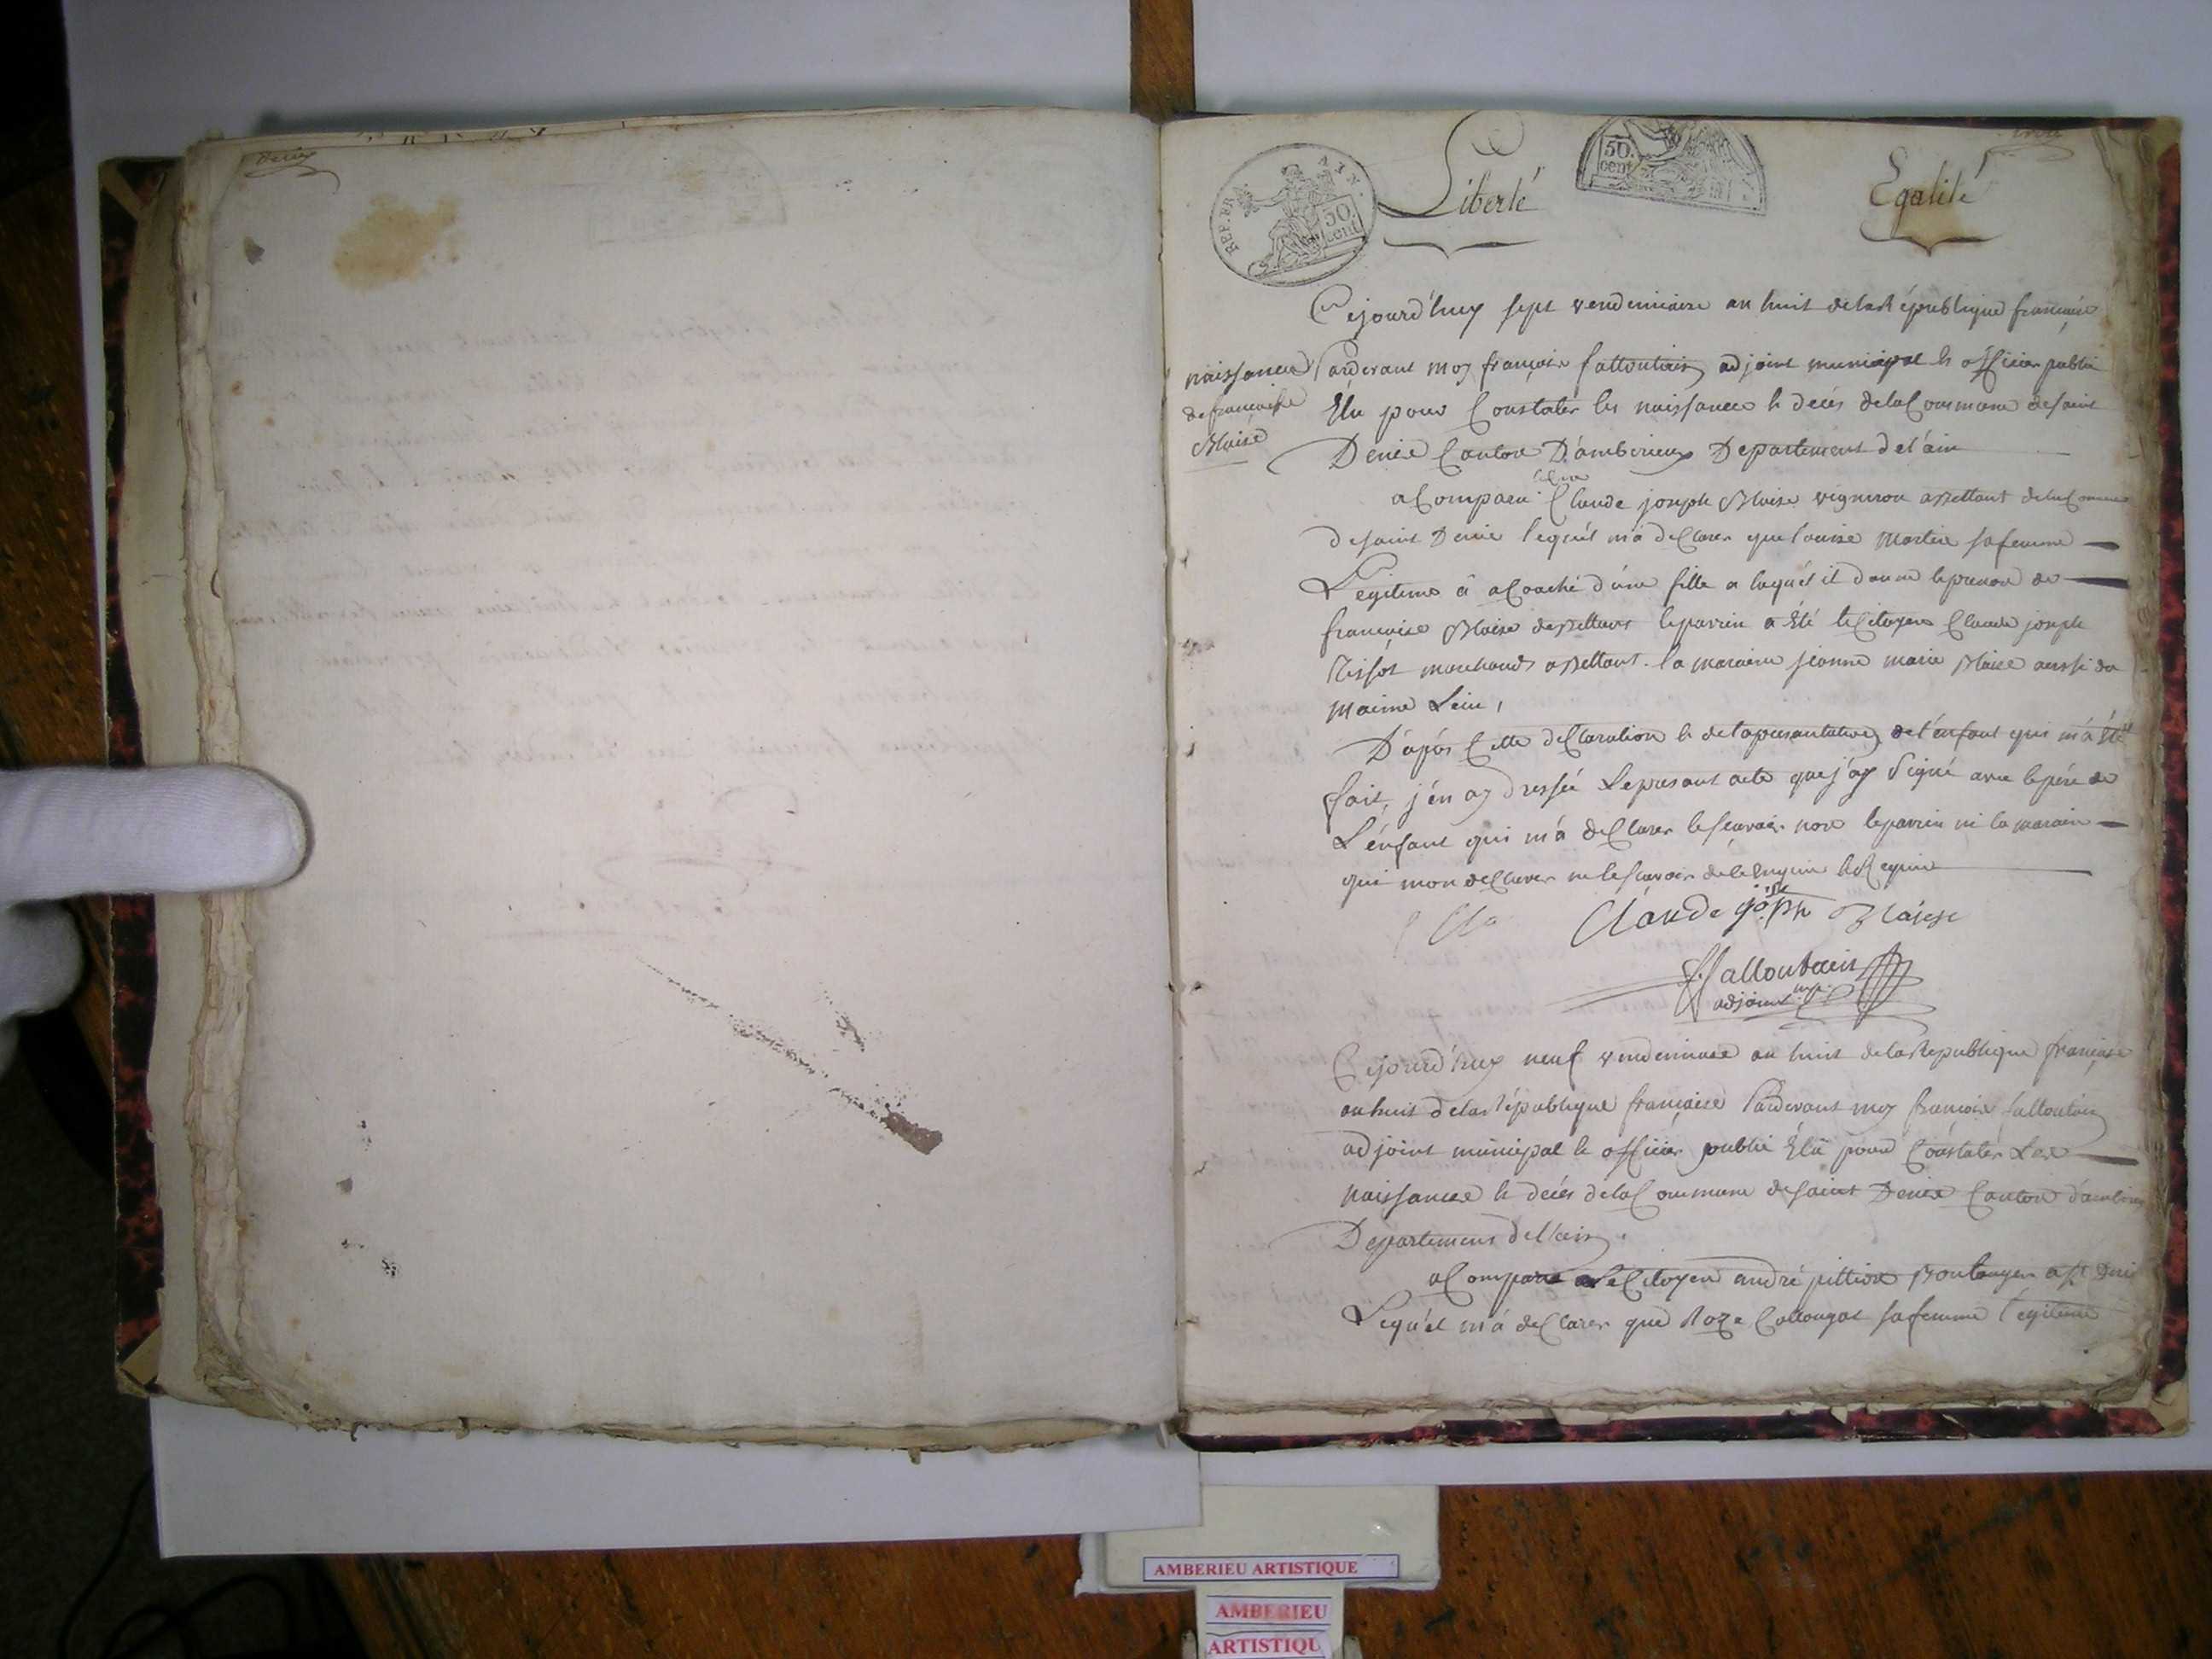 REP. FR.
AIN.
50. cent
Liberté
50. cent
Egalité
Cejourd'huy sept vendemiaire an huit de la République française
naissance
de françoise
Blaise
Pardevant moy françois fattoutain adjoint municipal et officier public
Elu pour Constater les naissance et deces de la Commune de saint
Denis Canton D'amberieux Departement de l'ain
a Comparu le Cen Claude joseph Blaise vigneron abettant de la Commune
de saint Denis lequél m'a déClarer que louise Martin sa femme
Légitime à aCouché d'une fille a laquél il donne le prenon de
françoise Blaise abettant le parrin a Eté le Citoyen Claude joseph
Tissot marchand abettant. la maraine jeanne marie Blaise aussi du
maime Leiu,
D'após Cette déClaration et de la presantation de l'énfant qui m'á été
fait, j'én ay dressée Le presant acte que j'ay Signé avec le pére de
L'énfant qui m'á déClarer le scavoir non le parrin ni la marain
qui mon déClarer ne le scavoir de le Enquin et Requin
Claude joseph Blaise
ffattoutain
adjoint mpl
Cejourd'huy neuf vendemiaire an huit de la République française
an huit de la République française Pardevant moy françois fattoutain
adjoint municipal et officier public Elu pour Constater Les
naissances et deces de la Commune de saint Denis Canton d'amberieux
Departement de l'ain.
a Comparu Le Citoyen andré pittion Boulanger a St Denis
Lequél m'á déClarer que Roze Collougat sa femme légitime
AMBERIEU ARTISTIQUE
AMBERIEU
ARTISTIQU